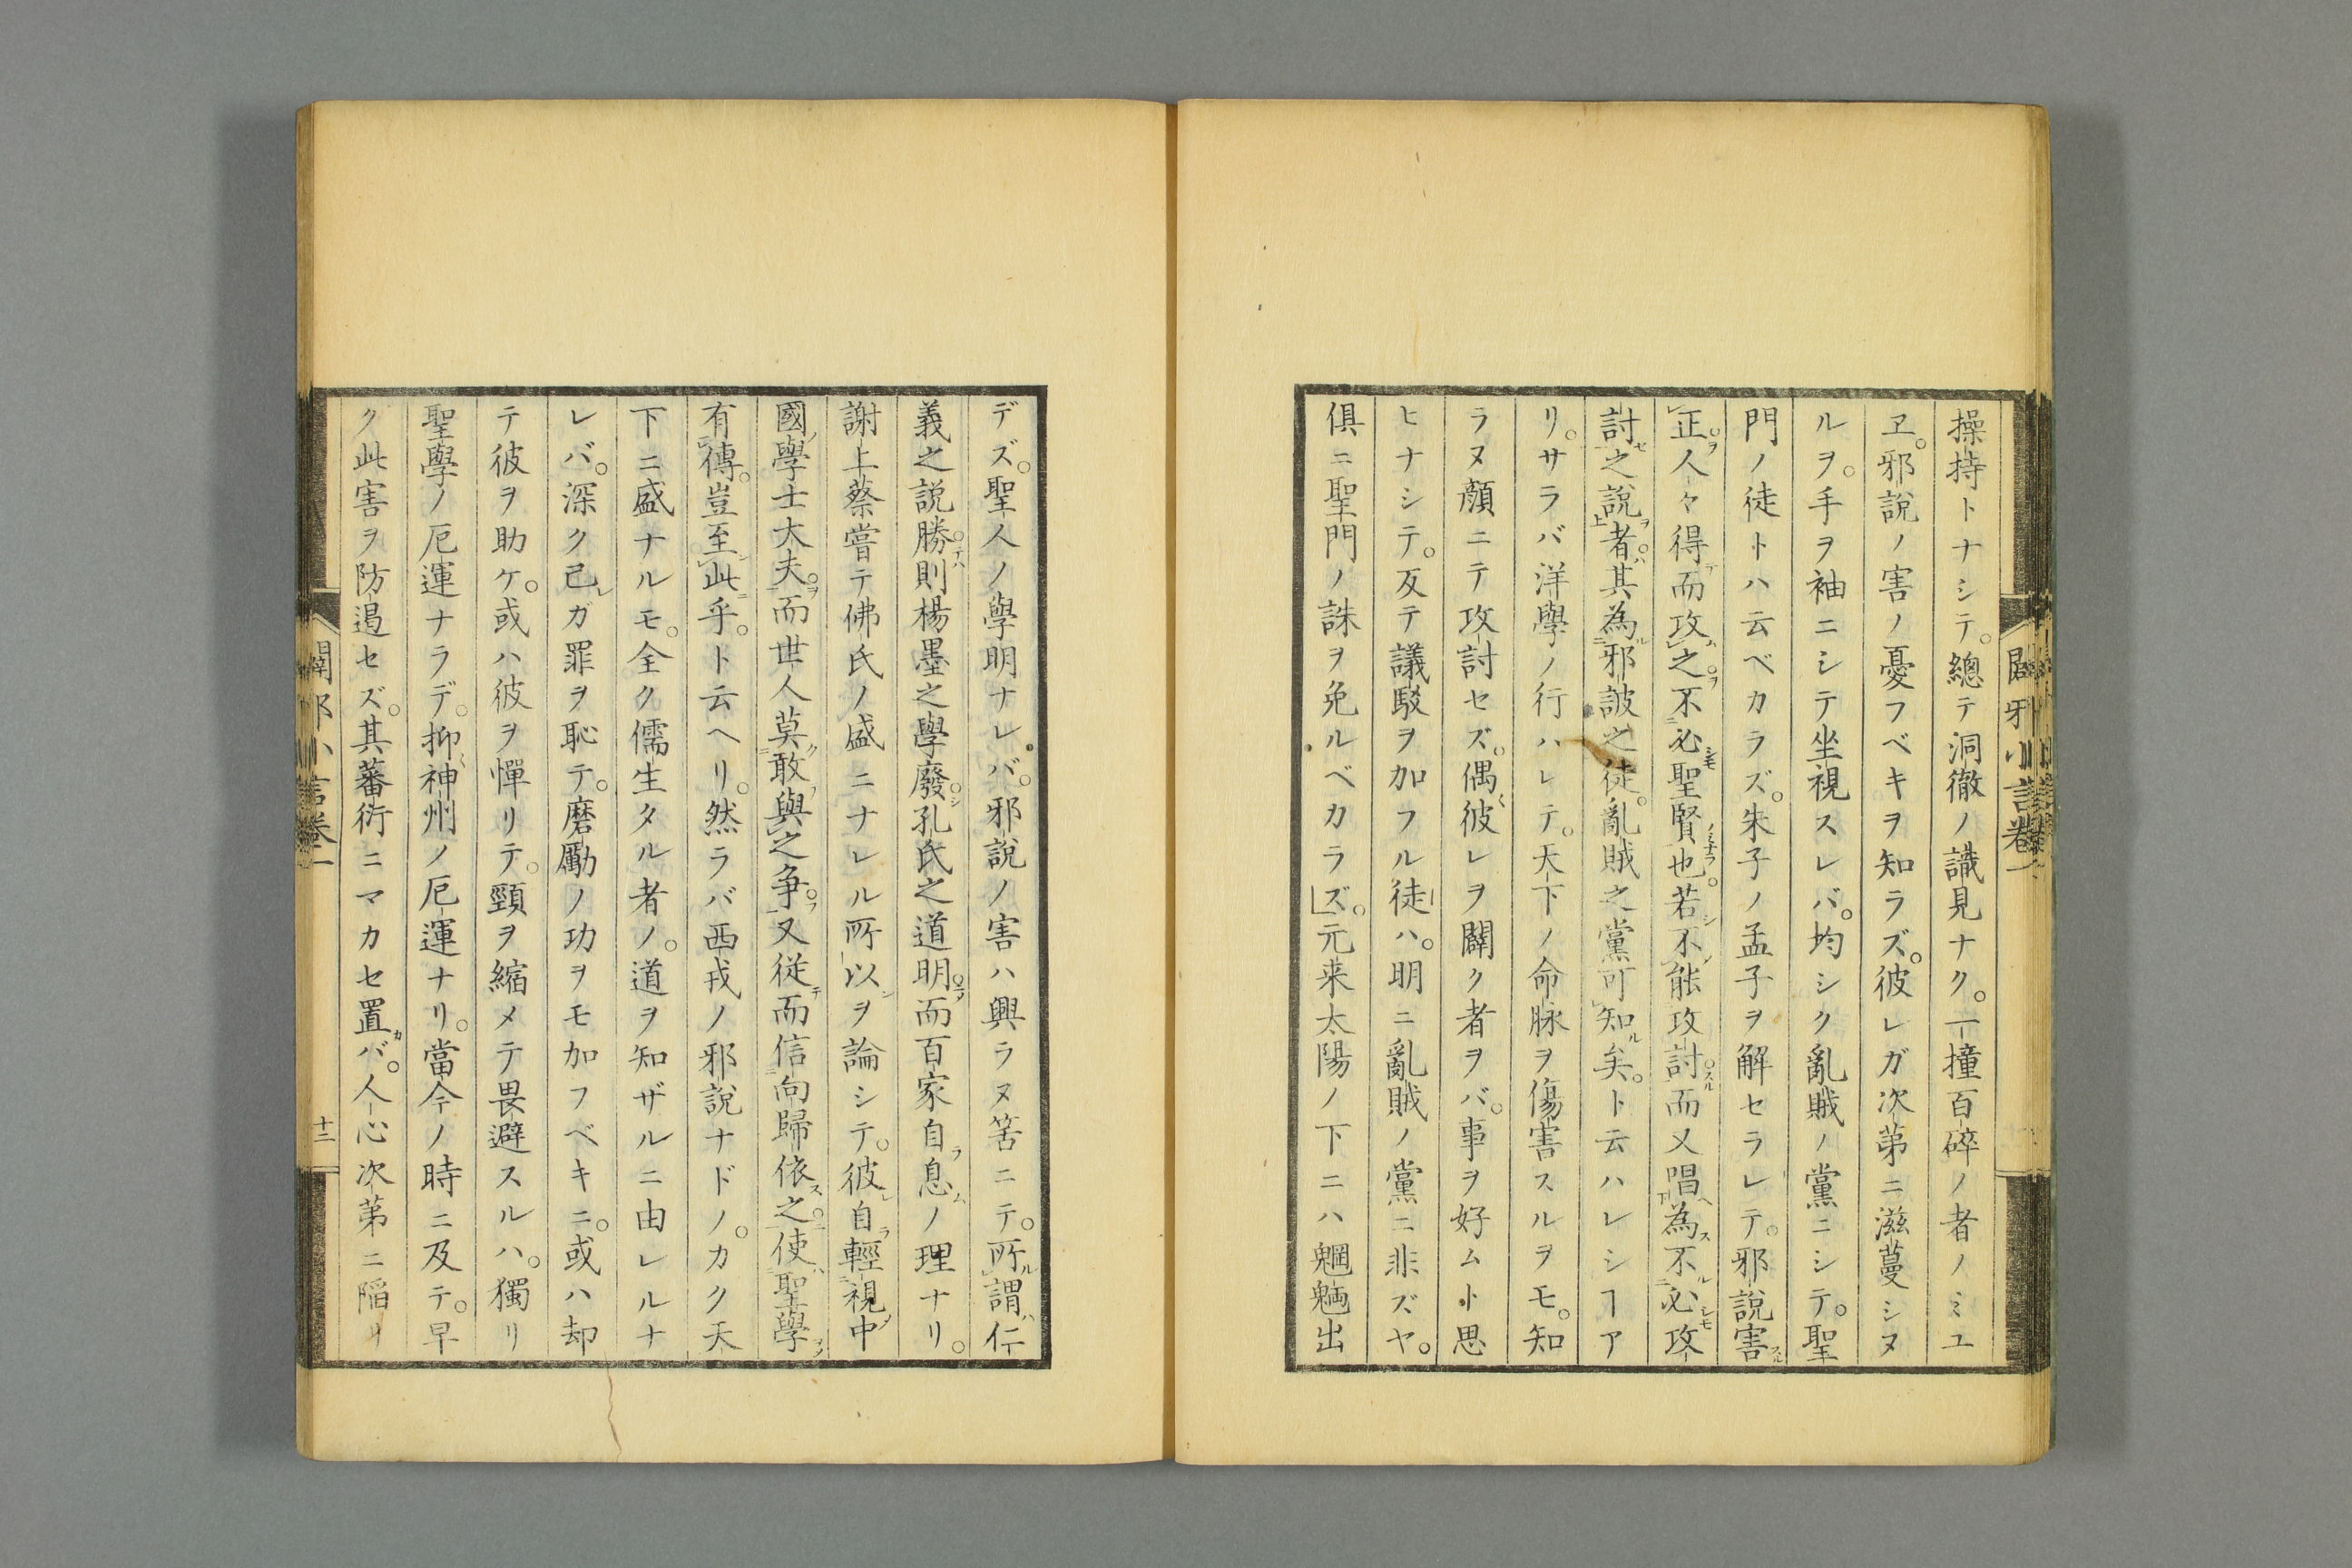 操持トナシテ。總テ洞徹ノ識見ナク。一撞百碎ノ者ノミユ
ヱ。邪説ノ害ノ憂フベキヲ知ラズ。彼レガ次第ニ滋蔓シヌ
ルヲ。手ヲ袖ニシテ坐視スレバ。均シク亂賊ノ黨ニシテ。聖
門ノ徒トハ云ベカラズ。朱子ノ孟子ヲ解セラレテ。邪説害スル
正ヲ。人々得テ而攻ム之ヲ。不必シモ聖賢ノミナラ也。若シ不ノ能攻討スル。而又唱ヘ為ス不ル必シモ攻
討セ之説ヲ者ハ。其為ル邪詖之徒。亂賊之黨可知ル矣。ト云ハレシヿア
リ。サラバ洋學ノ行ハレテ。天下ノ命脉ヲ傷害スルヲモ。知
ラヌ顔ニテ攻討セズ。偶〱彼レヲ闢ク者ヲバ。事ヲ好ムト思
ヒナシテ。反テ議駁ヲ加フル徒ハ。明ニ亂賊ノ黨ニ非ズヤ。
倶ニ聖門ノ誅ヲ免ルベカラズ。」元来太陽ノ下ニハ魍魎出
デズ。聖人ノ學明ナレバ。邪説ノ害ハ興ラヌ筈ニテ。所ル謂ハ仁
義之説勝テハ。則楊墨之學廢シ。孔氏之道明ニ乄。而百家自ラ息ムノ理ナリ。
謝上蔡嘗テ佛氏ノ盛ニナレル所以ヲ論シテ。彼レ自ラ輕視シ中
國ノ學士大夫ヲ。而世人莫ク敢フ與之争フ。又従テ而信向歸依ス之ニ。使ハ聖學ヲシ
有傳。豈至ン此ニ乎。ト云ヘリ。然ラバ西戎ノ邪説ナドノ。カク天
下ニ盛ナルモ。全ク儒生タル者ノ。道ヲ知ザルニ由レルナ
レバ。深ク己レガ罪ヲ恥テ。磨勵ノ功ヲモ加フベキニ。或ハ却
テ彼ヲ助ケ。或ハ彼ヲ憚リテ。頸ヲ縮メテ畏避スルハ。獨リ
聖學ノ厄運ナラデ。抑〱神州ノ厄運ナリ。當今ノ時ニ及テ。早
ク此害ヲ防遏セズ。其蕃衍ニマカセ置カバ。人心次第ニ陷リ
闢邪小言卷一
十二